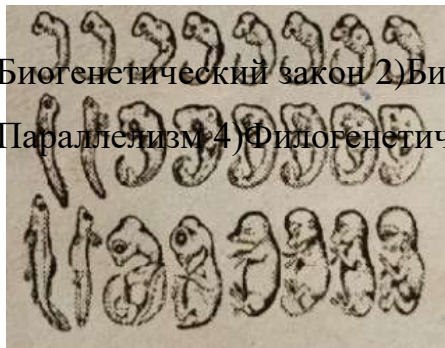 Биогенетический закон 2)Би
Параллелизм 4)Филогенетич